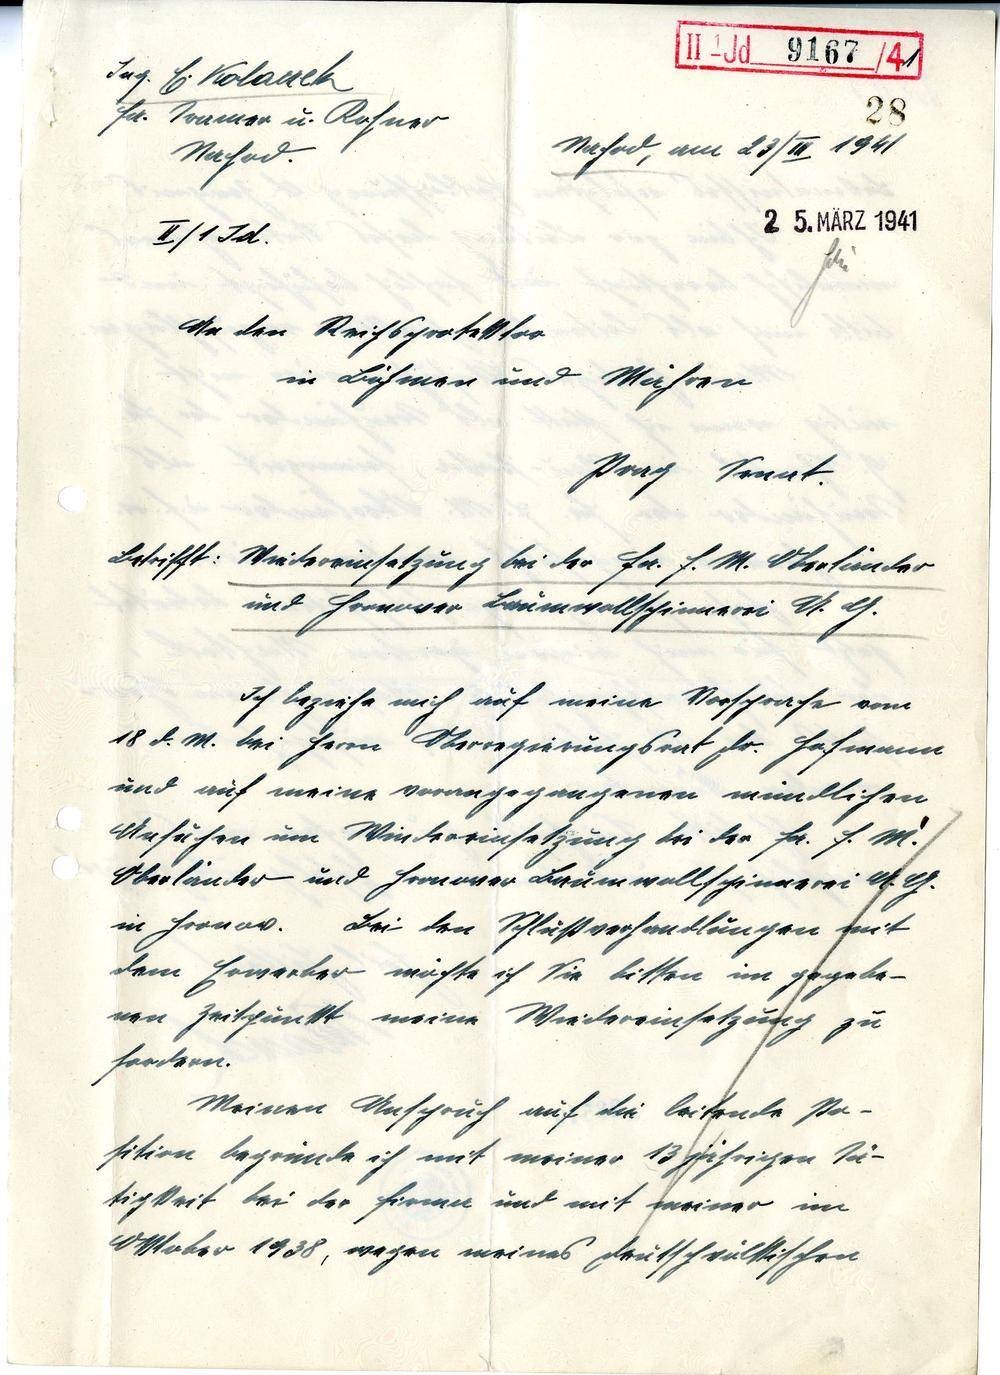 II 1 Jd 9167 /41
28
Ing. E. Kolaczek
Fa. Cramer u. Rohner
Nachod.
Nachod, am 23/III 1941
25. MÄRZ 1941
II/1 Jd.
An den Reichsprotektor
in Böhmen und Mähren
Prag
Betrifft: Wiedereinsetzung bei der Fa. F. M. Oberländer
und Hronover Baumwollspinnerei A. G.
Ich beziehe mich auf meine Vorsprache vom
18 d. M. bei Herrn Oberregierungsrat Dr. Hofmann
und auf meine vorangegangenen mündlichen
Ansuchen um Wiedereinsetzung bei der Fa. F. M.
Oberländer und Hronover Baumwollspinnerei A. G.
in Hronov. Bei den Schlußverhandlungen mit
dem Erwerber möchte ich Sie bitten im gegebe-
nen Zeitpunkt meine Wiedereinsetzung zu
fordern.
Meinen Anspruch auf die leitende Po-
sition begründe ich mit meiner 13 jährigen Tä-
tigkeit bei der Firma und mit meiner im
Oktober 1938, wegen meines deutschvölkischen